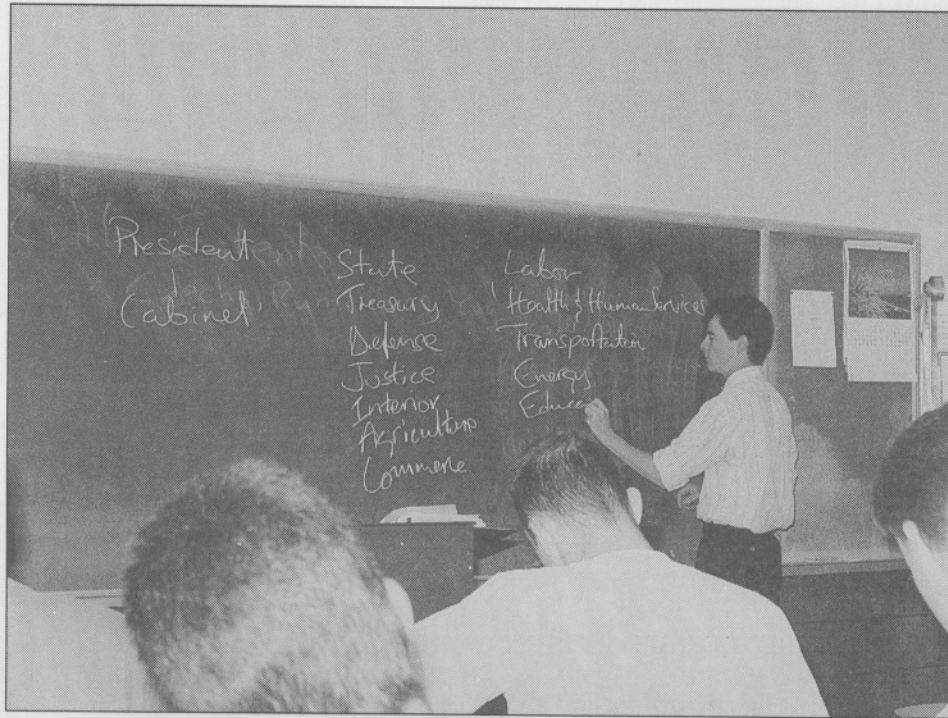 President
Cabinet
State
Treasury
Defense
Justice
Interior
Agriculture
Commerce
Labor
Health & Human Services
Transportation
Energy
Educa